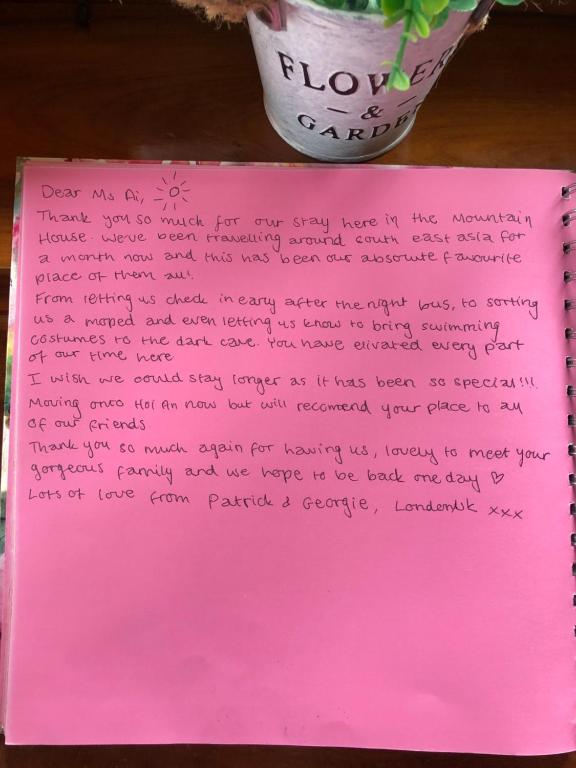 FLOWER
&
GARDE
Dear Ms Ai,
Thank you so much for our stay here in the Mountain
House. We've been travelling around south east asia for
a month now and this has been our absolute favourite
place of them all!
From letting us check in early after the night bus, to sorting
us a moped and even letting us know to bring swimming
costumes to the dark cave. You have elivated every part
of our time here
I wish we could stay longer as it has been so special!!!
Moving onto Hoi An now but will recomend your place to all
of our friends.
Thank you so much again for having us, lovely to meet your
gorgeous family and we hope to be back one day ♡
Lots of love from Patrick & Georgie, London UK xxx